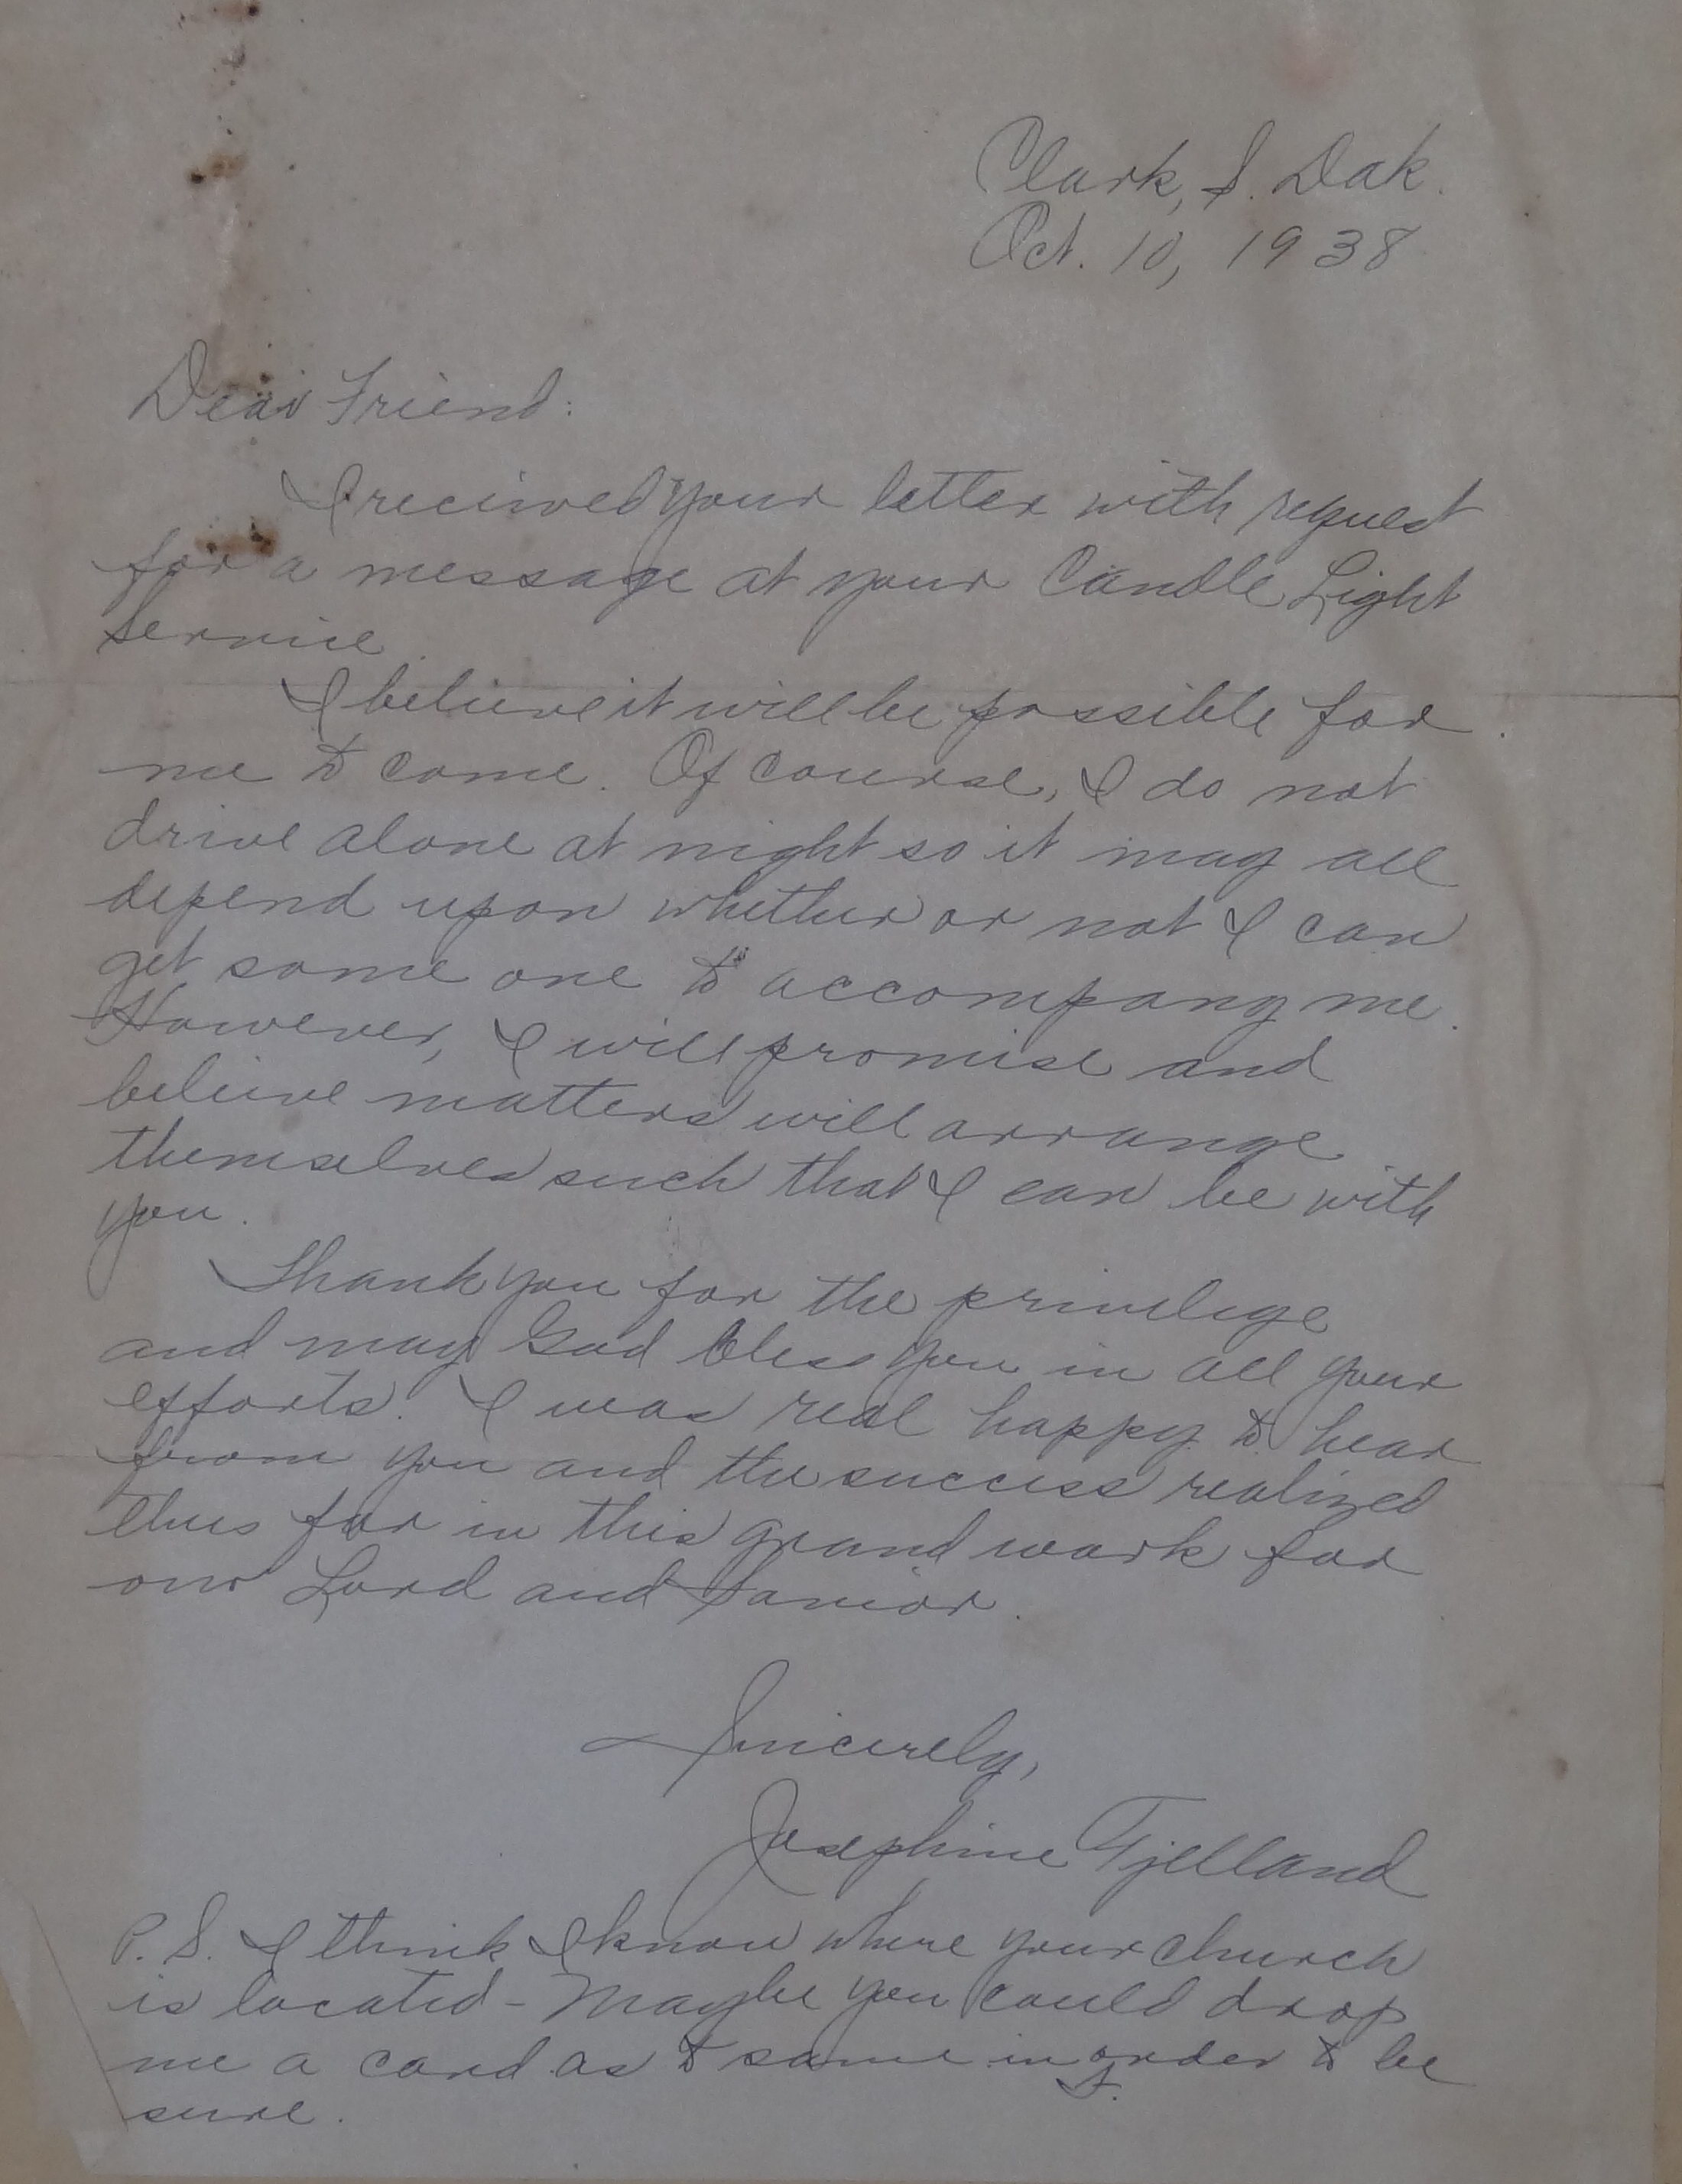 Clark, S. Dak.
Oct. 10, 1938
Dear Friend:
I received your letter with request
for a message at your Candle Light
Service.
I believe it will be possible for
me to come. Of course, I do not
drive alone at night so it may all
depend upon whether or not I can
get some one to accompany me.
However, I will promise and
believe matters will arrange
themselves such that I can be with
you.
Thank you for the privilege
and may God bless you in all your
efforts. I was real happy to hear
from you and the success realized
thus far in this grand work for
our Lord and Savior.
Sincerely,
Josephine Tjelland
P. S. I think I know where your church
is located - Maybe you could drop
me a card as to same in order to be
sure.